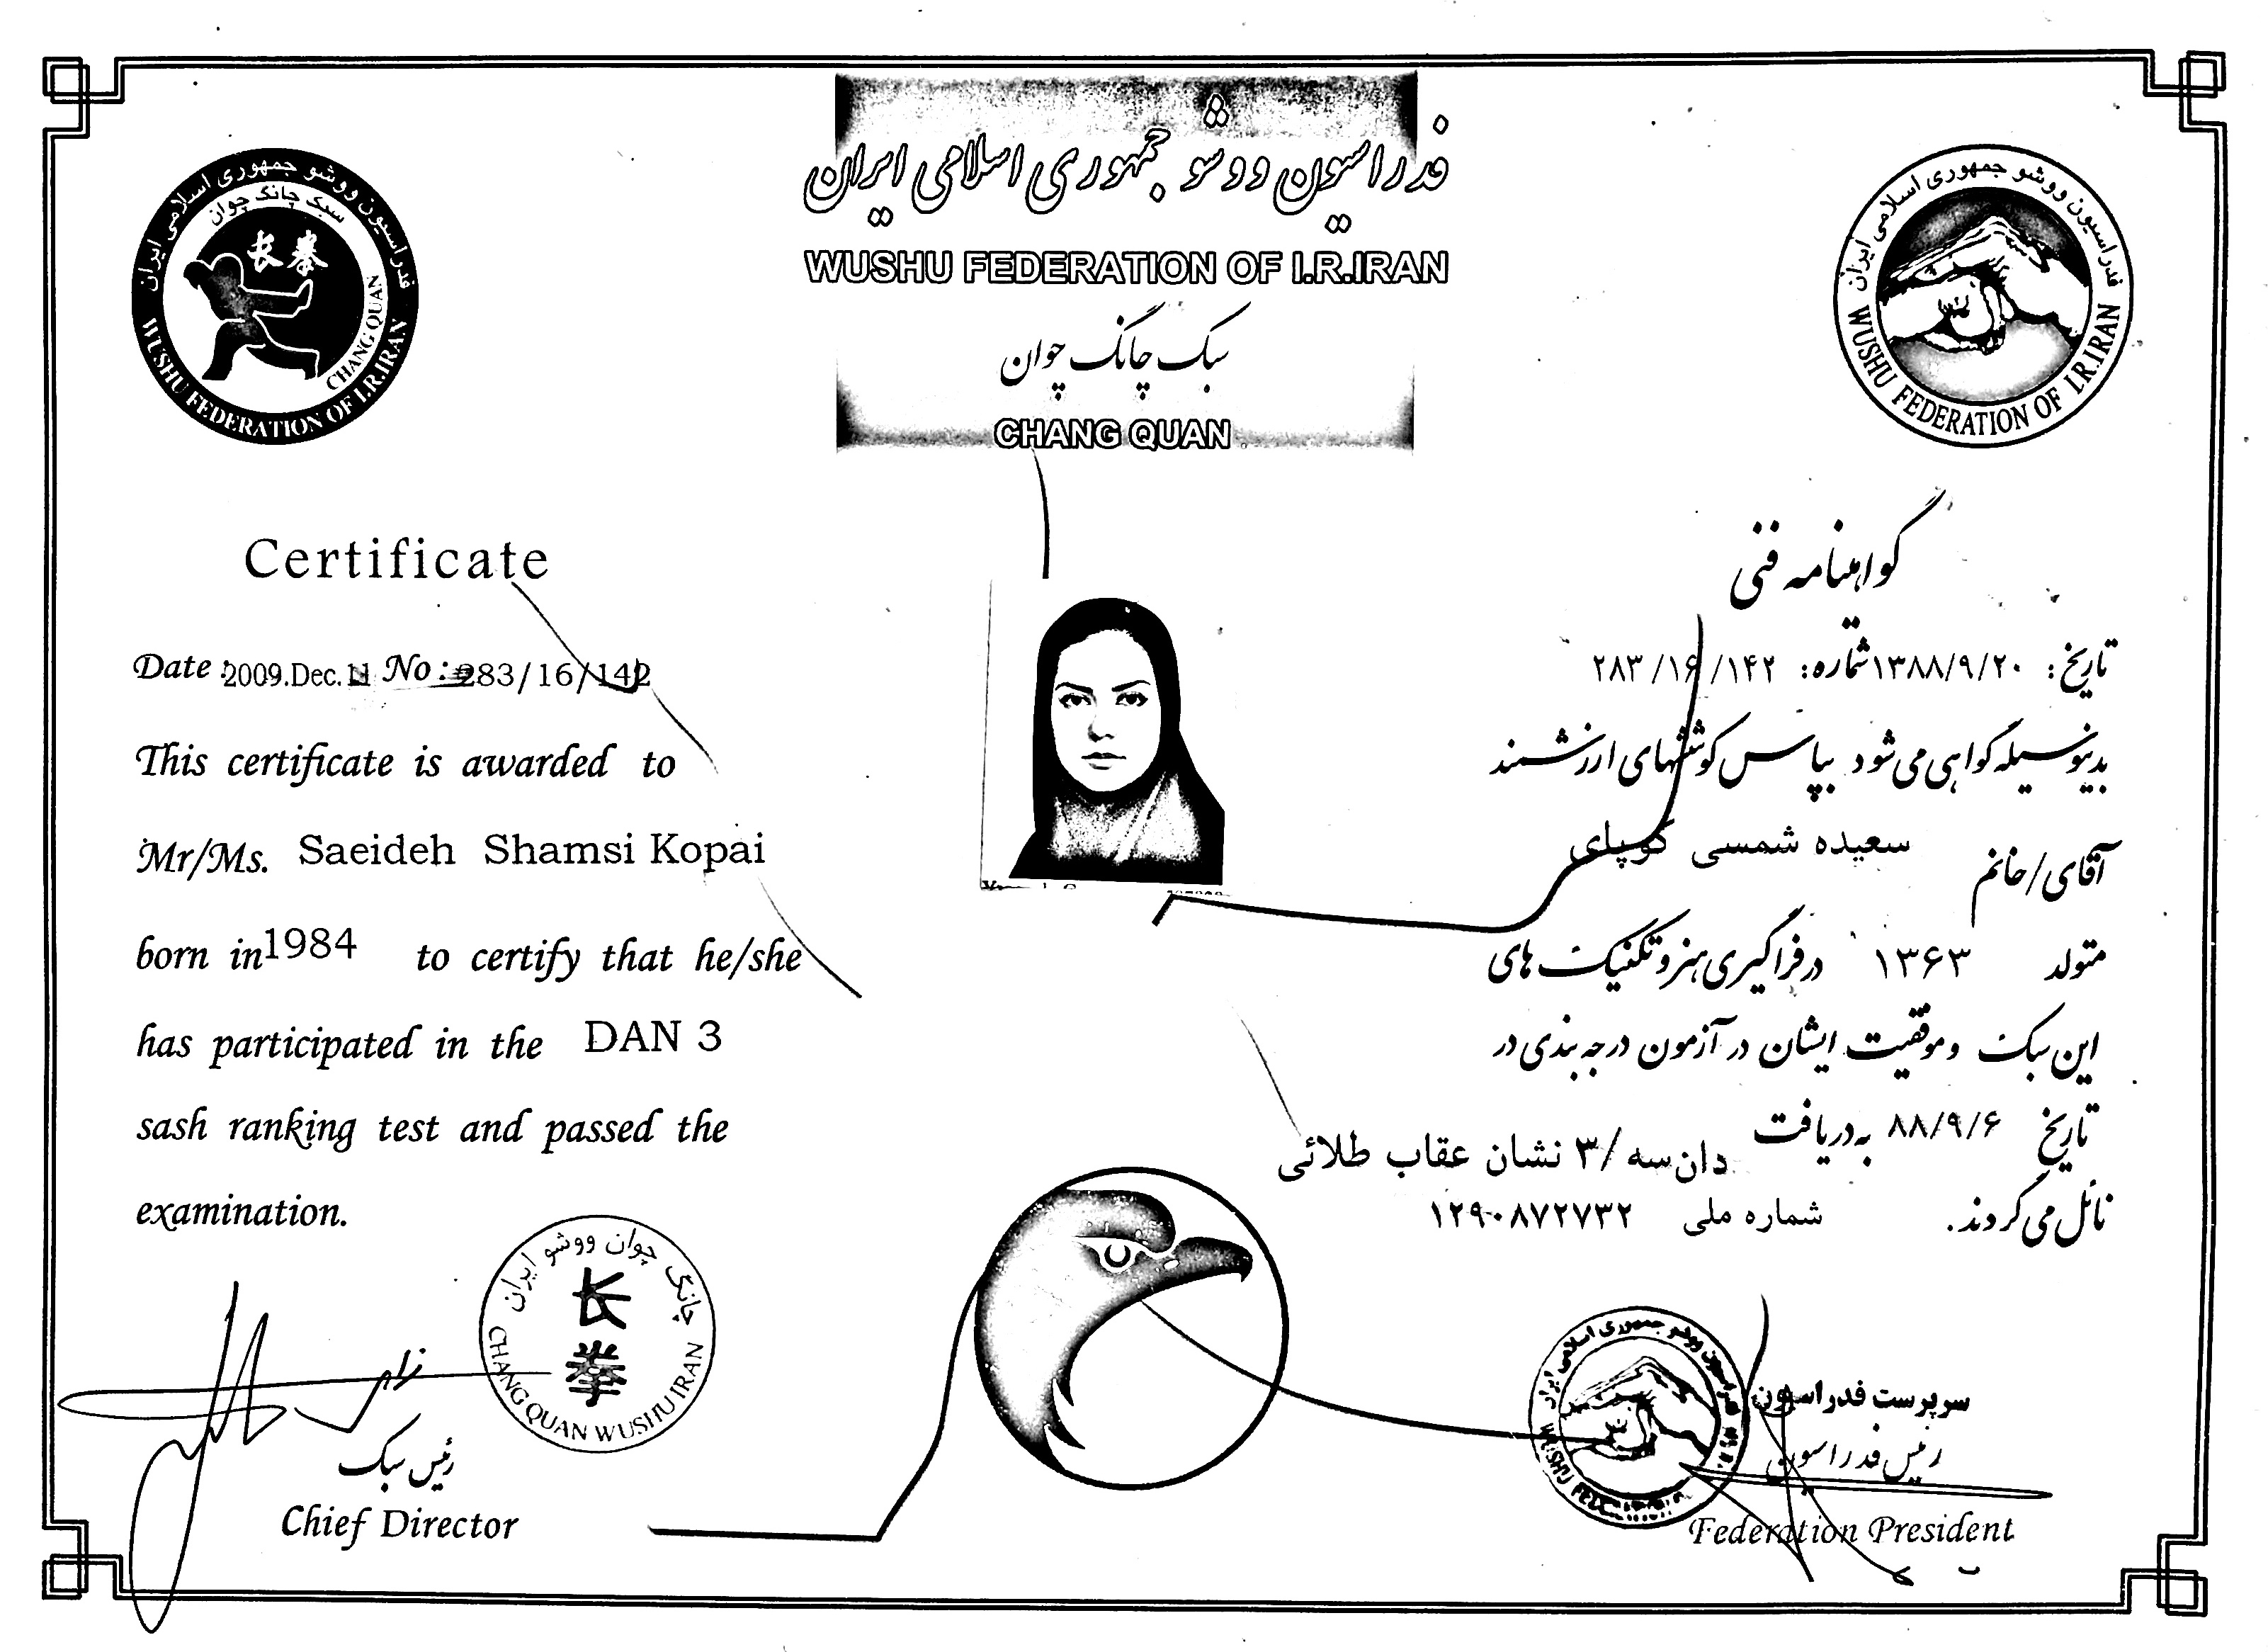 فدراسیون ووشو جمهوری اسلامی ایران
WUSHU FEDERATION OF I.R.IRAN
سبک چانگ چوان
CHANG QUAN
فدراسیون ووشو جمهوری اسلامی ایران
سبک چانگ چوان
長拳
CHANG QUAN
WUSHU FEDERATION OF I.R.IRAN
فدراسیون ووشو جمهوری اسلامی ایران
WUSHU FEDERATION OF I.R.IRAN
Certificate
Date : 2009.Dec.11 No : 283/16/142
This certificate is awarded to
Mr/Ms. Saeideh Shamsi Kopai
born in 1984 to certify that he/she
has participated in the DAN 3
sash ranking test and passed the
examination.
گواهینامه فنی
تاریخ : ۱۳۸۸/۹/۲۰ شماره : ۲۸۳/۱۶/۱۴۲
بدینوسیله گواهی می شود بپاس کوششهای ارزشمند
آقای/خانم سعیده شمسی کوپای
متولد ۱۳۶۳ در فراگیری هنر و تکنیک های
این سبک و موفقیت ایشان در آزمون درجه بندی در
تاریخ ۸۸/۹/۶ به دریافت دان سه /۳ نشان عقاب طلائی
نائل می گردند. شماره ملی ۱۲۹۰۸۷۲۷۳۲
چانگ چوان ووشو ایران
长拳
CHANG QUAN WUSHU IRAN
رئیس سبک
Chief Director
فدراسیون ووشو جمهوری اسلامی ایران
WUSHU
سرپرست فدراسیون
رئیس فدراسیون
Federation President